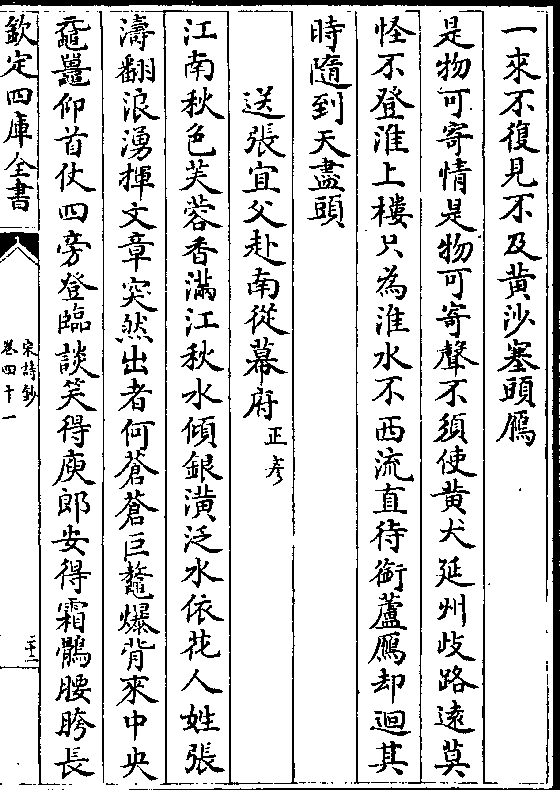 一來不復見不及黄沙塞頭鴈
是物可寄情是物可寄聲不須使黄犬延州歧路遠莫
怪不登淮上樓只為淮水不西流直待銜蘆鴈却迴其
時隨到天盡頭
送張宜父赴南從幕府正彥
江南秋色芙蓉香滿江秋水傾銀潢泛水依花人姓張
濤翻浪湧揮文章突然出者何蒼蒼巨鼇爆背來中央
黿鼉仰首伏四旁登臨談笑得庾郎安得霜鶻腰胯長
欽定四庫全書
宋詩鈔
卷四十一
二十二